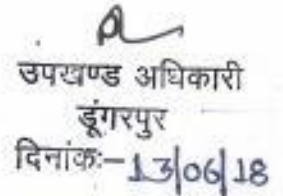 उपखण्ड अधिकारी
डूंगरपुर
दिनांकः-13/06/18